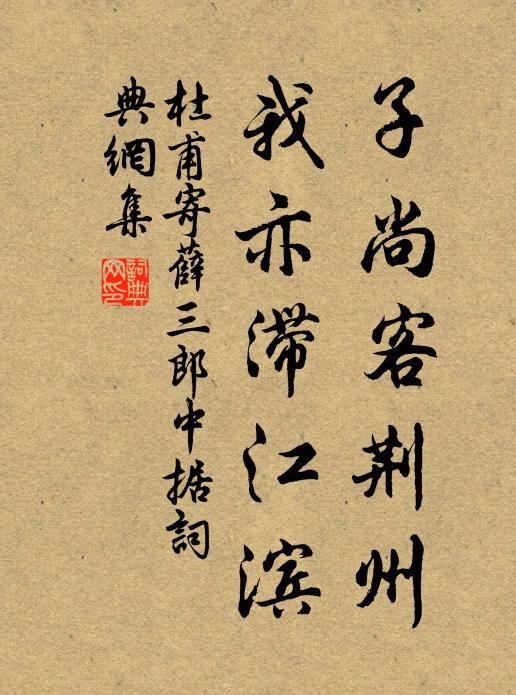 子尚客荆州
我亦滞江滨
杜甫寄薛三郎中据詞
典網集
詞典
网印